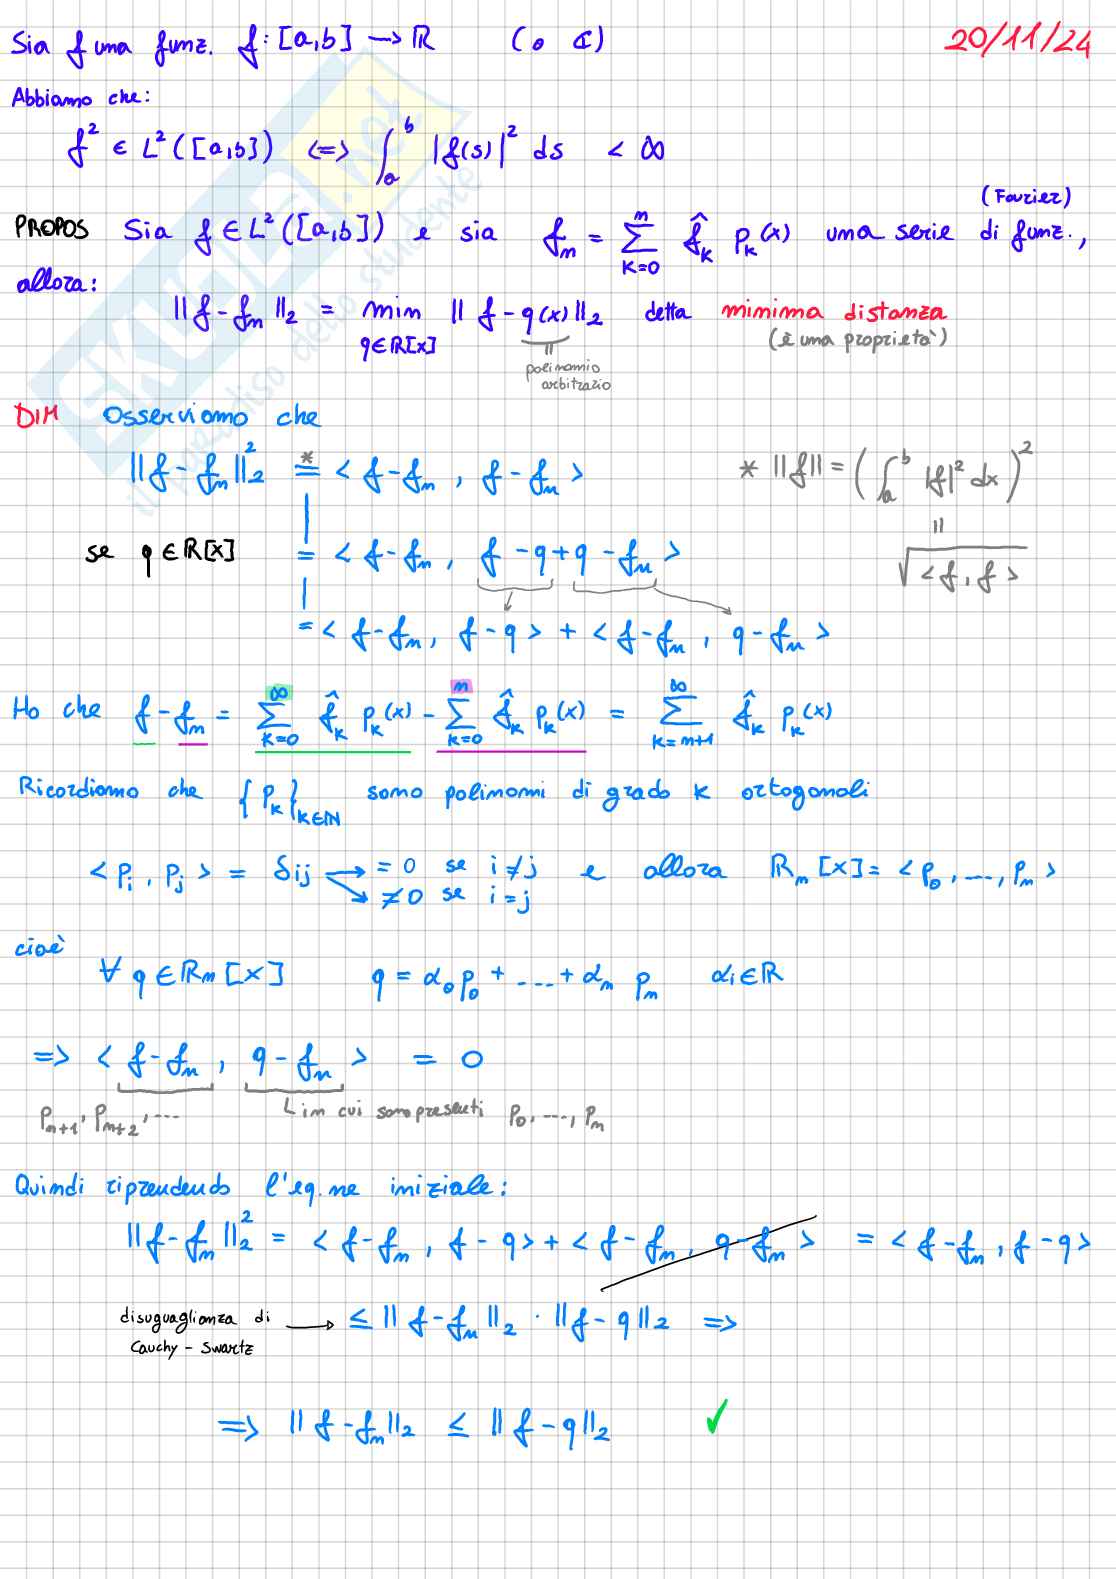 Sia f una funz. f: [a,b] → ℝ (o ℂ) 20/11/24
Abbiamo che:
f² ∈ L²([a,b]) <=> ∫_a^b |f(s)|² ds < ∞
(Fourier)
PROPOS Sia f ∈ L²([a,b]) e sia f_n = Σ_{k=0}^{n} f̂_k p_k(x) una serie di funz.,
allora:
||f-f_n||₂ = min_{q∈ℝ[x]} || f-q(x)||₂ detta minima distanza
(è una proprietà)
polinomio
arbitrario
DIM Osserviamo che
||f-f_n||²₂ =* < f-f_n, f-f_n > * ||f|| = (∫_a^b |f|² dx)²
se q∈ℝ[x] = < f-f_n, f-q+q-f_n > = √<f, f>
= < f-f_n, f-q> + < f-f_n, q-f_n >
Ho che f-f_n = Σ_{k=0}^{∞} f̂_k p_k(x) - Σ_{k=0}^{n} f̂_k p_k(x) = Σ_{k=n+1}^{∞} f̂_k p_k(x)
Ricordiamo che {p_k}_{k∈ℕ} sono polinomi di grado k ortogonali
< p_i, p_j > = δij → = 0 se i≠j e allora ℝ_n[x] = < p_0, ..., p_n >
→ ≠0 se i=j
cioè
∀ q∈ℝ_n[x] q = α_0 p_0 + ... + α_n p_n α_i∈ℝ
=> < f-f_n, q-f_n > = 0
p_{n+1}, p_{n+2}, ... in cui sono presenti p_0, ..., p_n
Quindi riprendendo l'eq.ne iniziale:
||f-f_n||²₂ = < f-f_n, f-q> + < f-f_n, q-f_n > = < f-f_n, f-q>
disuguaglianza di → ≤ || f-f_n ||₂ · ||f-q||₂ =>
Cauchy-Swartz
=> || f-f_n||₂ ≤ || f-q||₂ ✓
SKUOLA.net
il paradiso dello studente